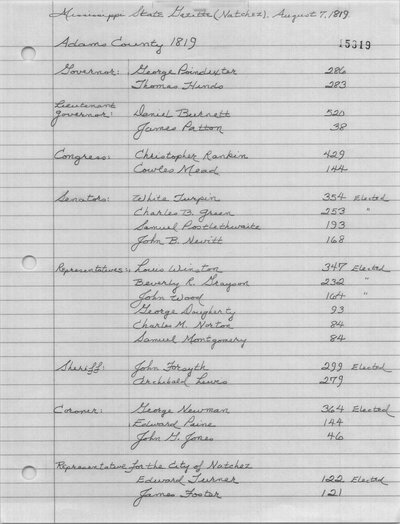 Mississippi State Gazette (Natchez), August 7, 1819.
Adams County 1819 15319
Governor: George Poindexter 286
Thomas Hinds 283
Lieutenant
Governor: Daniel Burnett 520
James Patton 38
Congress: Christopher Rankin 429
Cowles Mead 144
Senators: White Turpin 354 Elected
Charles B. Green 253 "
Samuel Postlethwaite 193
John B. Nevitt 168
Representatives: Louis Winston 347 Elected
Beverly R. Grayson 232 "
John Wood 164 "
George Dougherty 93
Charles M. Norton 84
Samuel Montgomery 84
Sheriff: John Forsyth 299 Elected
Archibald Lewis 279
Coroner: George Newman 364 Elected
Edward Paine 144
John G. Jones 46
Representative for the City of Natchez
Edward Turner 122 Elected
James Foster 121